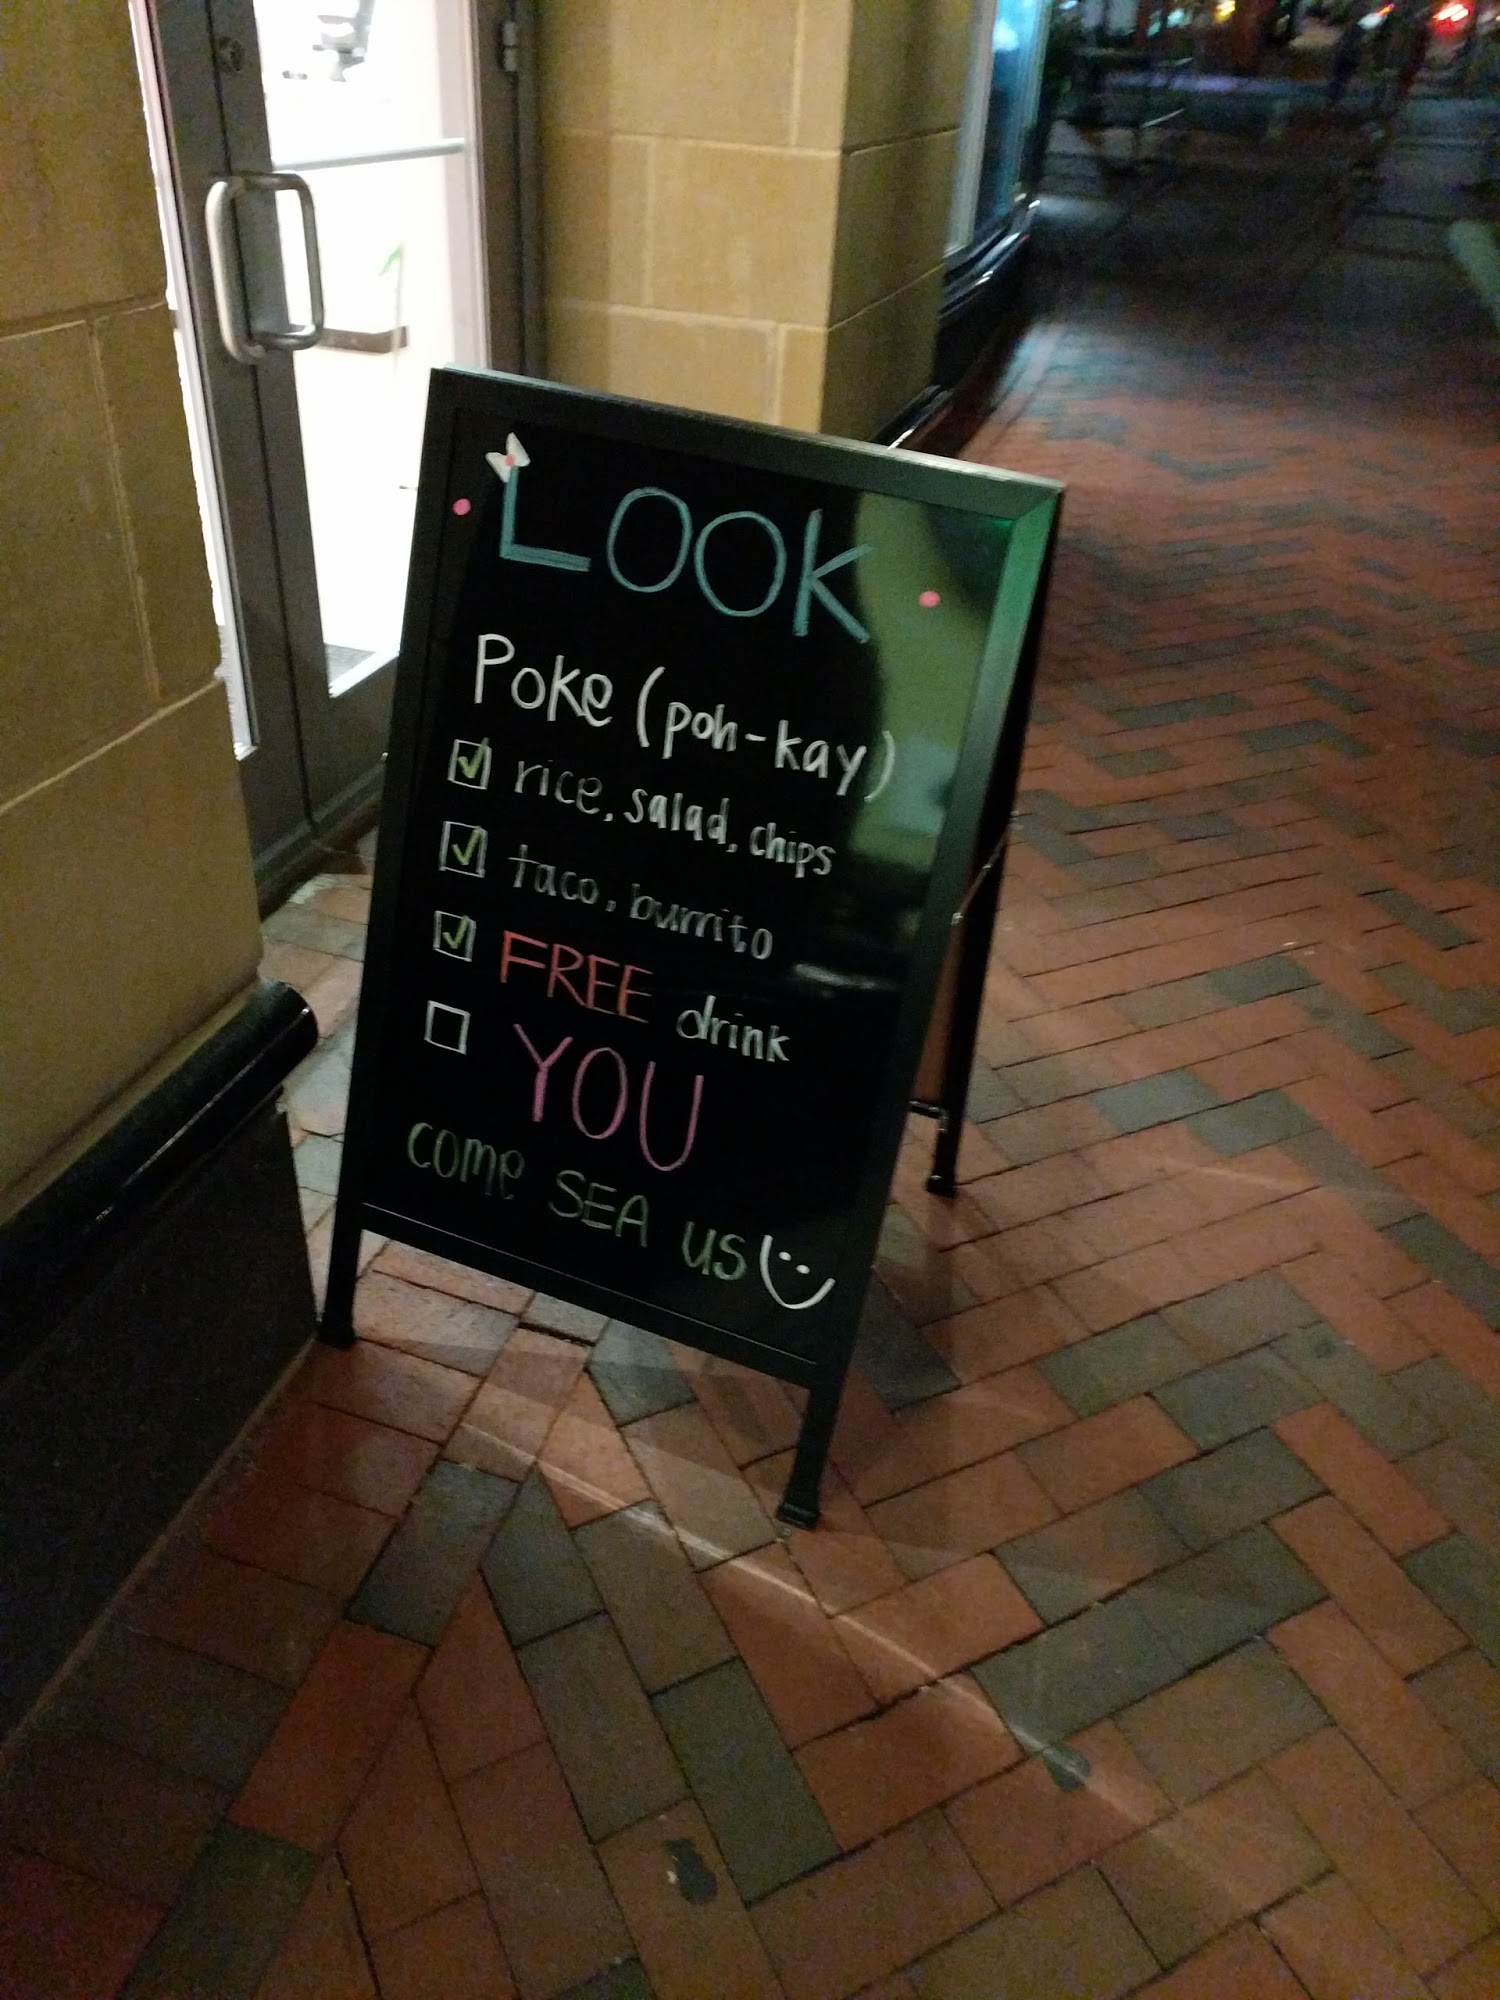 LOOK
Poke (poh-kay)
rice, salad, chips
taco, burrito
FREE drink
YOU
come SEA US